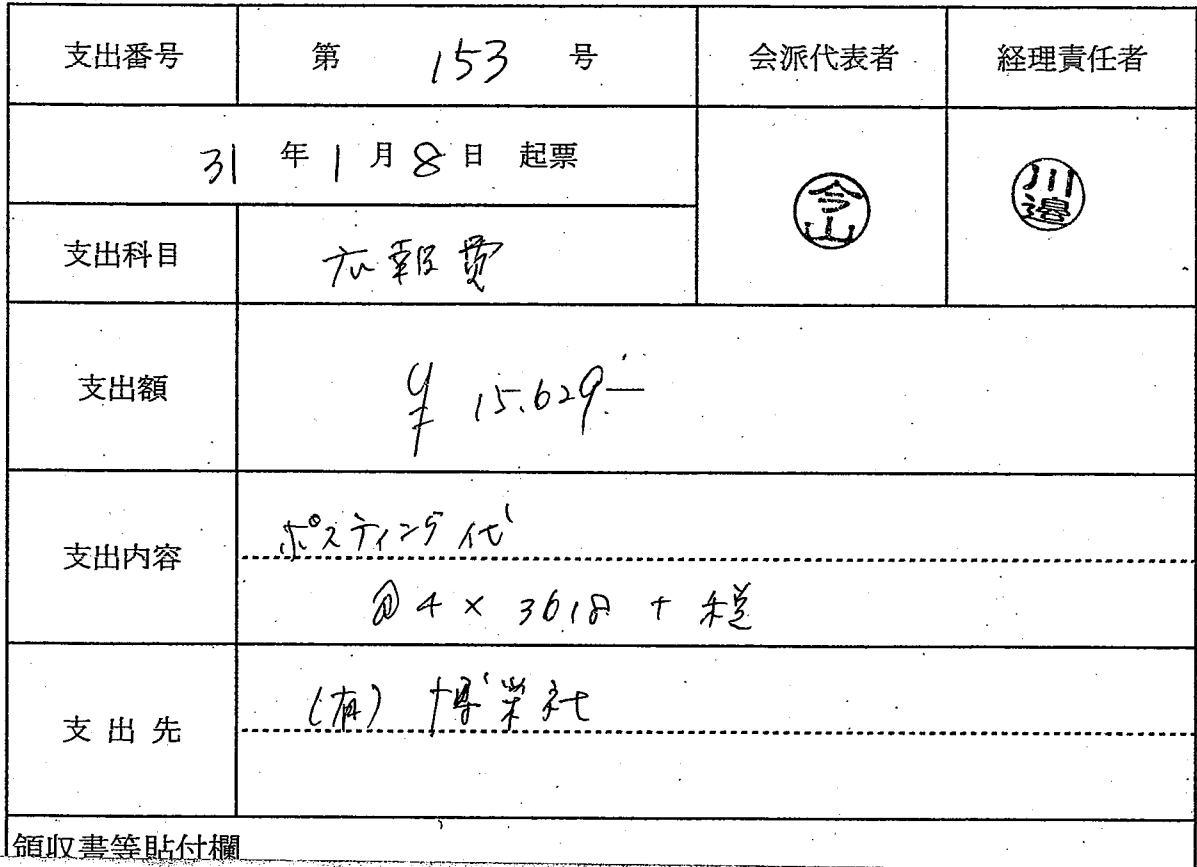 支出番号 第 153 号 会派代表者 経理責任者
31 年 1 月 8 日 起票
今山
川邉
支出科目 広報費
支出額 ¥ 15,629.―
支出内容 ポスティング代
@ 4 × 3618 + 税
支出先 (有) 博栄社
領収書等貼付欄